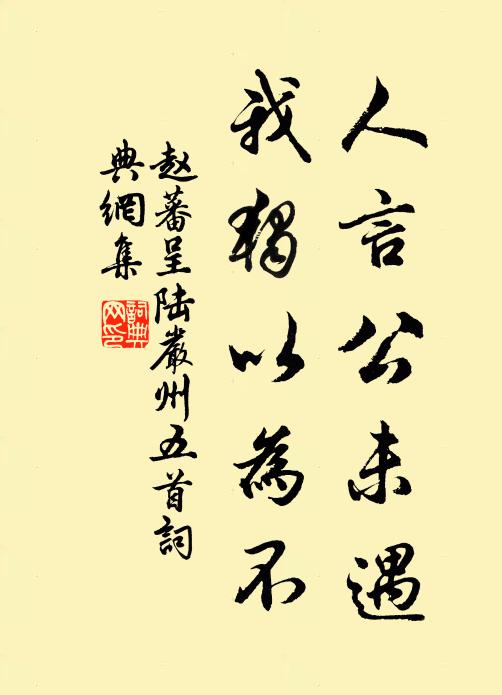 人言公未遇
我独以為不
赵蕃呈陆嚴州五首詞
典網集
詞典网印